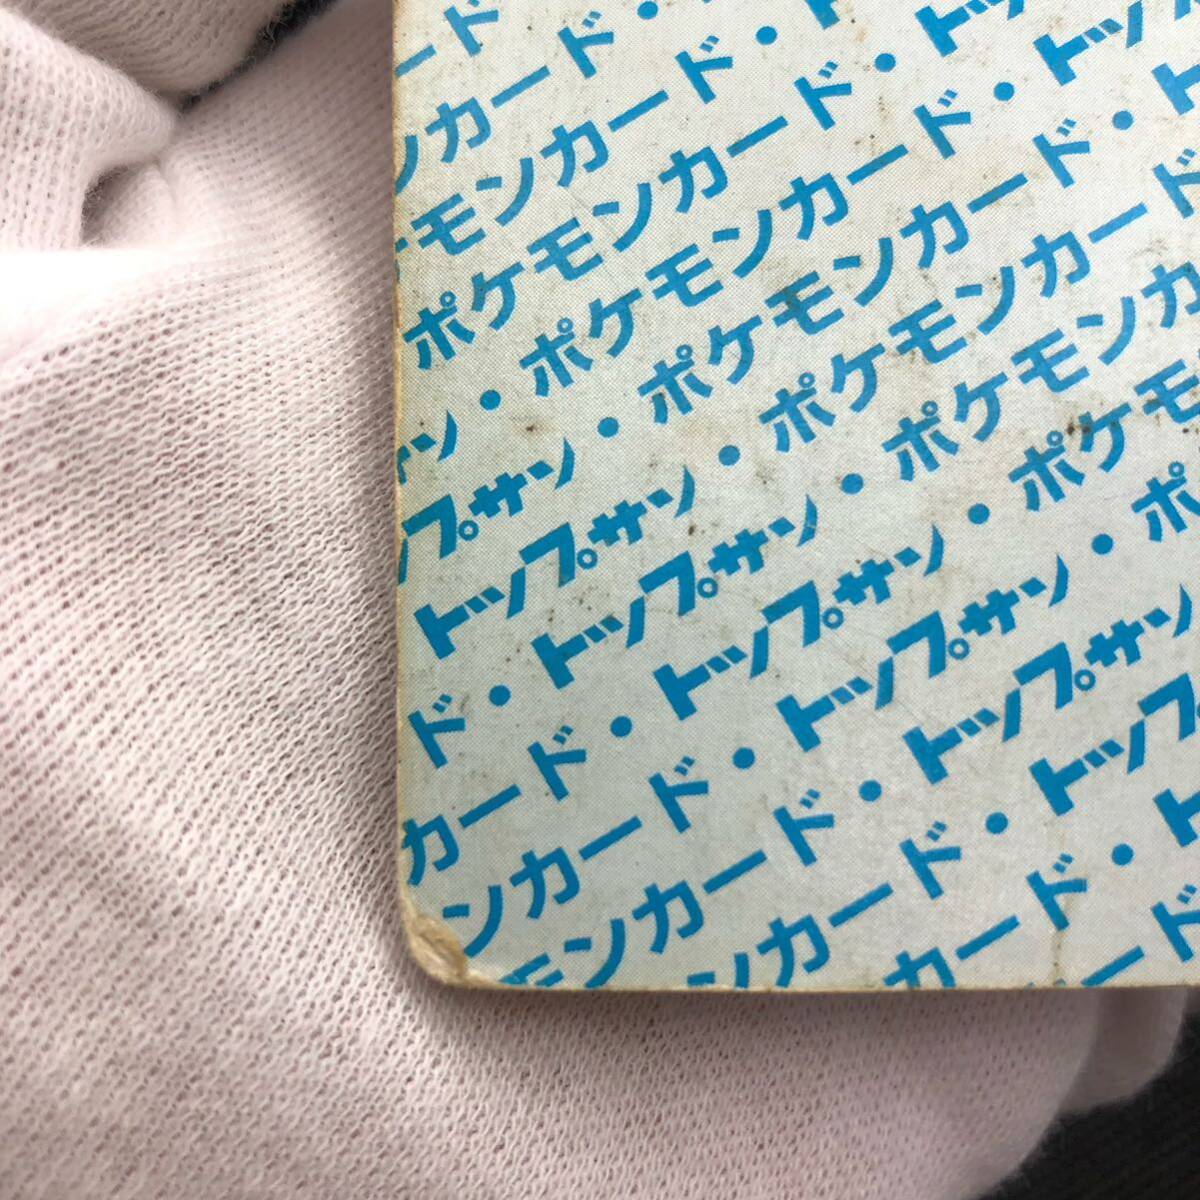 カード
ンカード・
ケモンカード・ト
ポケモンカード・トッ
ン・ポケモンカード・トップ
プサン・ポケモンカード・ト
トップサン・ポケモンカード
ド・トップサン・ポケモンカ
カード・トップサン・ポケモ
ンカード・トップサン・ポ
モンカード・トップサン
ンカード・トップ
カード・ト
ード